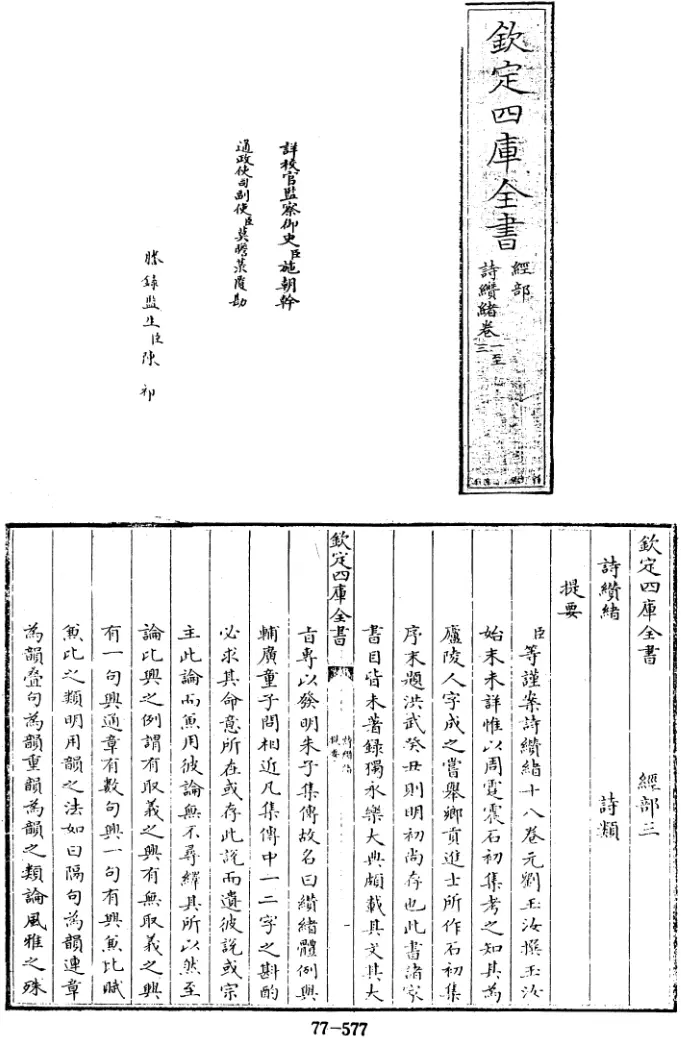 欽定四庫全書
經部
詩纘緒卷一至三
詳校官監察御史臣施朝幹
通政使司副使臣莫瞻菉覆勘
謄錄監生臣陳 祁
欽定四庫全書 經部三
詩纘緒 詩類
提要
臣等謹案詩纘緒十八卷元劉玉汝撰玉汝
始末未詳惟以周霆震石初集考之知其為
廬陵人字成之嘗舉鄉貢進士所作石初集
序末題洪武癸丑則明初尚存也此書諸家
書目皆未著録獨永樂大典頗載其文其大
欽定四庫全書
詩纘緒
提要
一
旨專以發明朱子集傳故名曰纘緒體例與
輔廣童子問相近凡集傳中一二字之斟酌
必求其命意所在或存此說而遺彼說或宗
主此論而兼用彼論無不尋繹其所以然至
論比興之例謂有取義之興有無取義之興
有一句興通章有數句興一句有興兼比賦
兼比之類明用韻之法如曰隔句為韻連章
為韻疊句為韻重韻為韻之類論風雅之殊
77-577